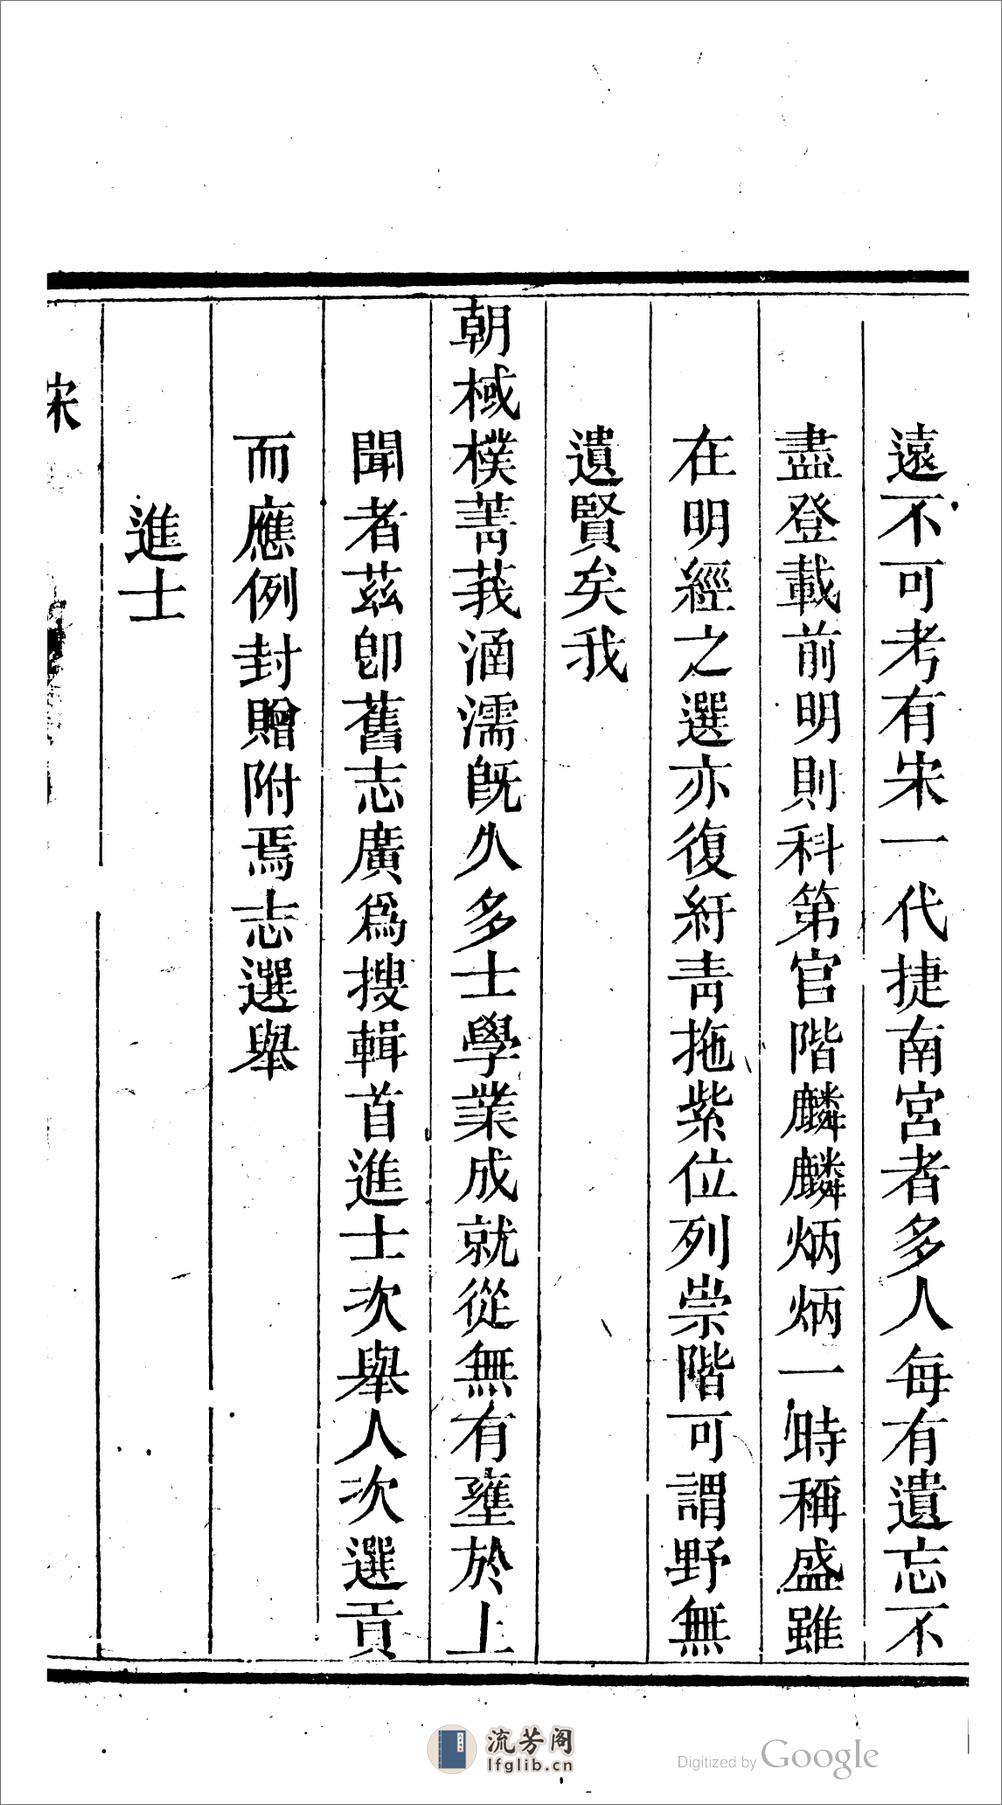 遠不可考有宋一代捷南宮者多人每有遺忘不
盡登載前明則科第官階麟麟炳炳一時稱盛雖
在明經之選亦復紆青拖紫位列崇階可謂野無
遺賢矣我
朝棫樸菁莪涵濡既久多士學業成就從無有壅於上
聞者茲卽舊志廣爲搜輯首進士次舉人次選貢
而應例封贈附焉志選舉
進士
宋
流芳阁
lfglib.cn
Digitized by Google